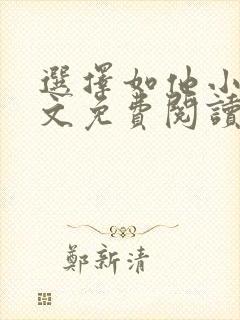 選擇如他小
文免費閱讀
鄭新清